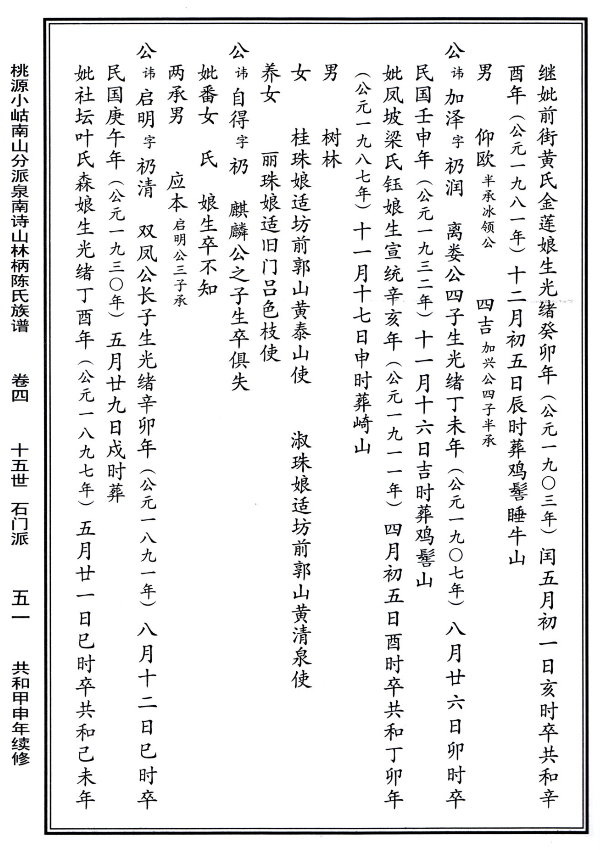 继妣前街黄氏金莲娘生光绪癸卯年（公元一九〇三年）闰五月初一日亥时卒共和辛
酉年（公元一九八一年）十二月初五日辰时葬鸡髻睡牛山
男 仰欧半承冰领公 四吉加兴公四子半承
公讳加泽字礽润 离娄公四子生光绪丁未年（公元一九〇七年）八月廿六日卯时卒
民国壬申年（公元一九三二年）十一月十六日吉时葬鸡髻山
妣凤坡梁氏钰娘生宣统辛亥年（公元一九一一年）四月初五日酉时卒共和丁卯年
（公元一九八七年）十一月十七日申时葬崎山
男 树林
女 桂珠娘适坊前郭山黄泰山使 淑珠娘适坊前郭山黄清泉使
养女 丽珠娘适旧门吕色枝使
公讳自得字礽 麒麟公之子生卒俱失
妣番女 氏 娘生卒不知
两承男 应本启明公三子承
公讳启明字礽清 双凤公长子生光绪辛卯年（公元一八九一年）八月十二日巳时卒
民国庚午年（公元一九三〇年）五月廿九日戌时葬
妣社坛叶氏森娘生光绪丁酉年（公元一八九七年）五月廿一日巳时卒共和己未年
桃源小岵南山分派泉南诗山林柄陈氏族谱 卷四 十五世 石门派 五一 共和甲申年续修